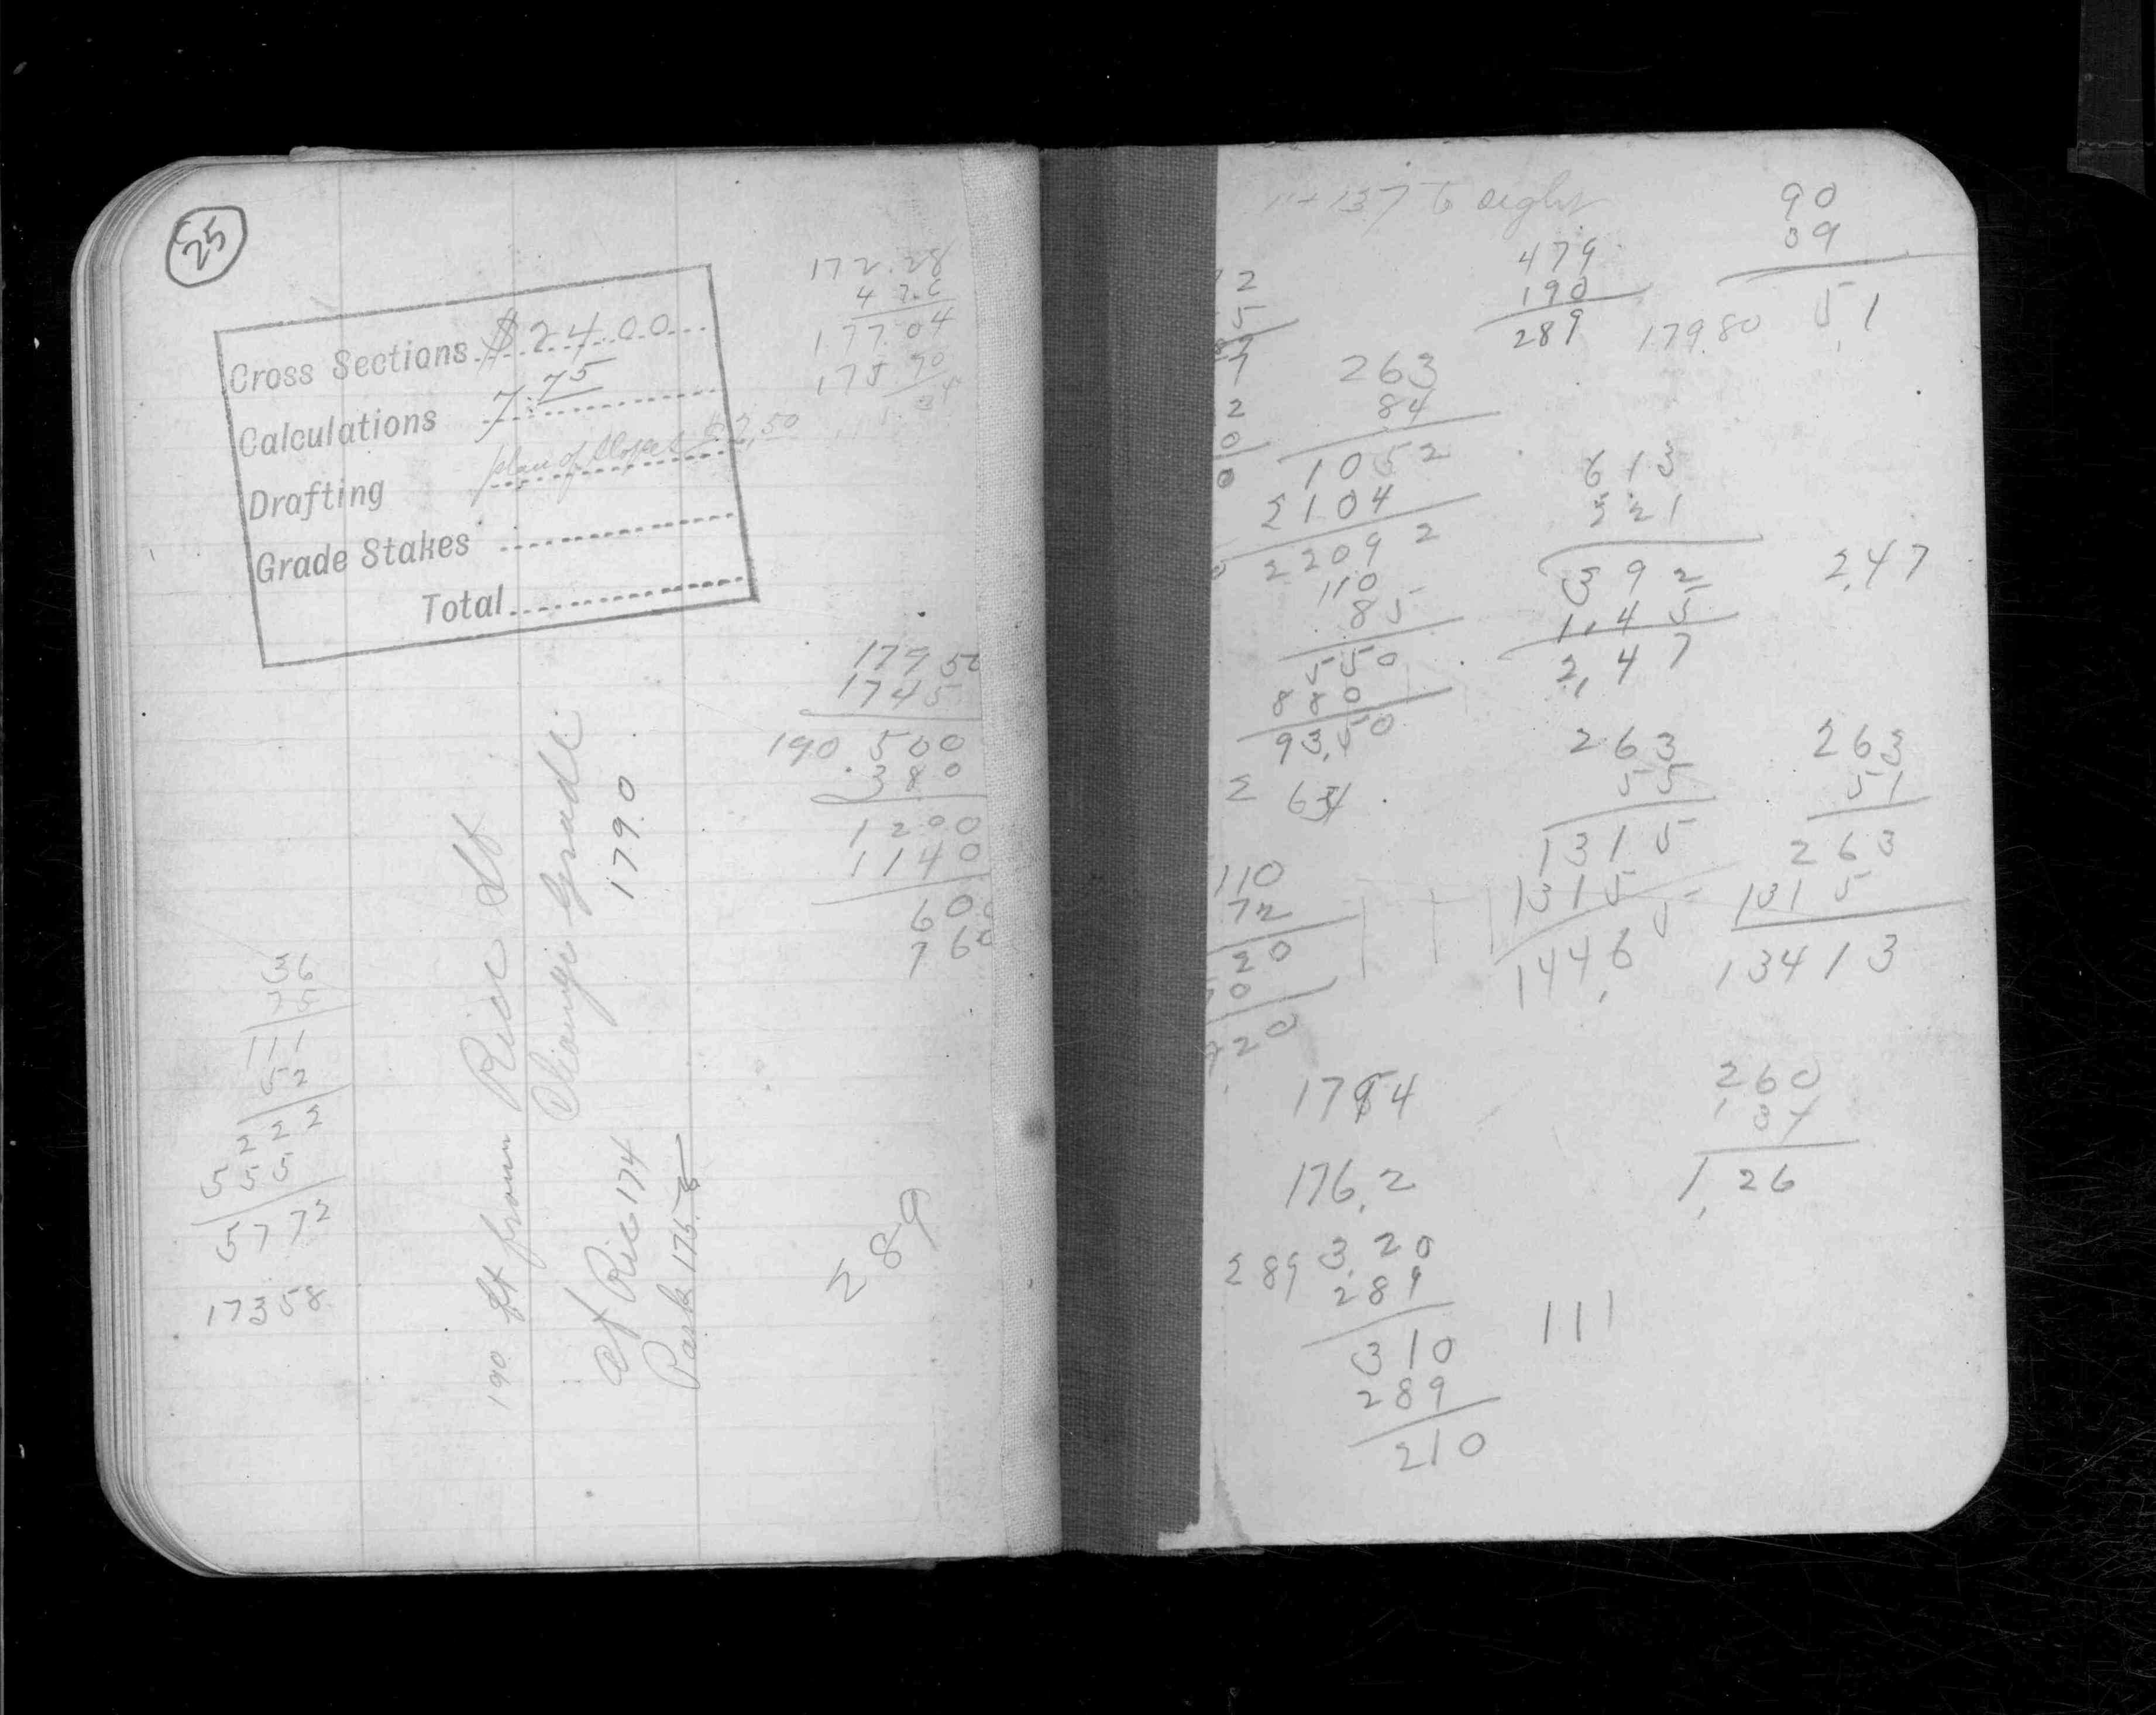 25
Cross Sections $24.00
Calculations 7.75
Drafting plan of slopes $2.50
Grade Stakes
Total
172.28
4 76
177 04
175 90
179 50
174 5
190 .500
380
1200
1140
600
760
190 ft from Rice St
Change Grade
179.0
at Rice 174
Park 175.8
36
75
111
52
222
555
5772
17358
289
137 to
90
39
51
479
190
289
179.80
2
5
2
0
0
263
84
1052
2104
22092
613
221
392
1.45
2.47
2.47
110
85
550
880
93.50
2 63
263
55
1315
1315
144.65
263
51
263
1315
13413
110
72
20
0
20
1784
176.2
260
34
1.26
289 3.20
289
310
289
210
111